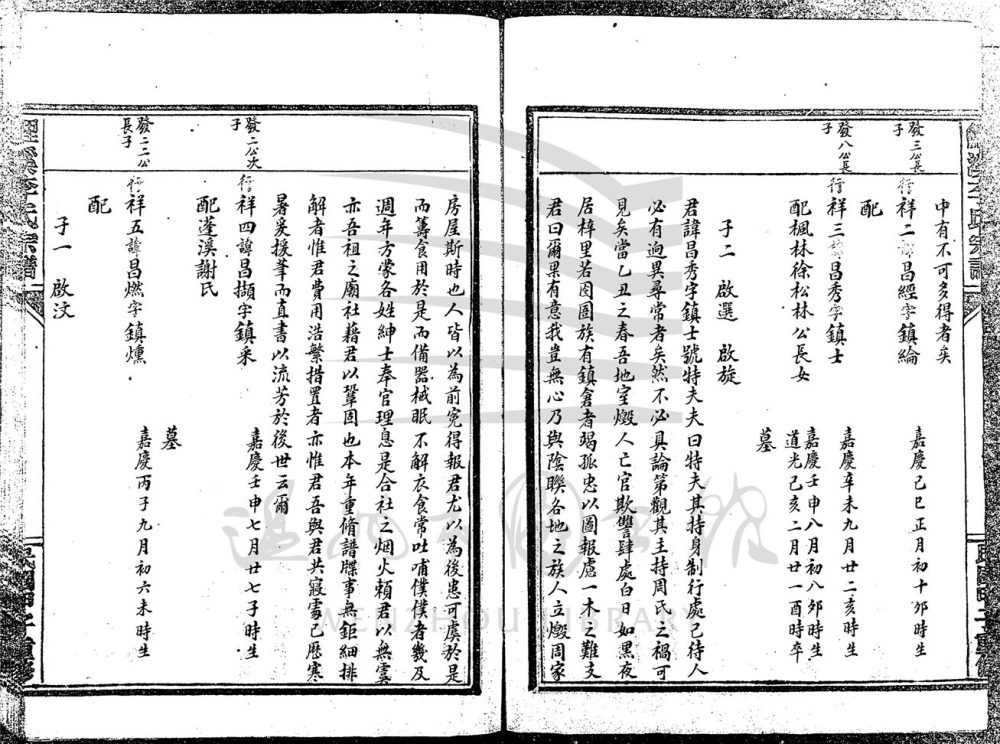 申有不可多得者矣
發三公長子
行祥二諱昌經字鎮綸
嘉慶己巳正月初十卯時生
配
發八公長子
行祥三諱昌秀字鎮士
嘉慶辛未九月廿二亥時生
配楓林徐松林公長女
嘉慶壬申八月初八卯時生
道光己亥二月廿一酉時卒
墓
子二 啟選 啟旋
君諱昌秀字鎮士號特夫夫曰特夫其持身制行處己待人
必有逈異尋常者矣然不必具論第觀其主持周氏之禍可
見矣當乙丑之春吾地室燬人亡官欺讐肆處白日如黑夜
居梓里若囹圄族有鎮倉者竭孤忠以圖報慮一木之難支
君曰爾果有意我豈無心乃與陰聯各地之族人立燬周家
房屋斯時也人皆以為前寃得報君尤以為後患可虞於是
而籌食用於是而備器械眠不解衣食常吐哺僕僕者幾及
週年方蒙各姓紳士奉官理息是合社之烟火賴君以無雲
亦吾祖之廟社藉君以鞏固也本年重脩譜牒事無鉅細排
解者惟君費用浩繁措置者亦惟君吾與君共寢處已歷寒
暑爰援筆而直書以流芳於後世云爾
發二公次子
行祥四諱昌擷字鎮采
嘉慶壬申七月廿七子時生
配蓬溪謝氏
發二二公長子
行祥五諱昌燃字鎮燻
嘉慶丙子九月初六未時生
墓
配
子一 啟汶
李氏宗譜
WENZHOU LIBRARY